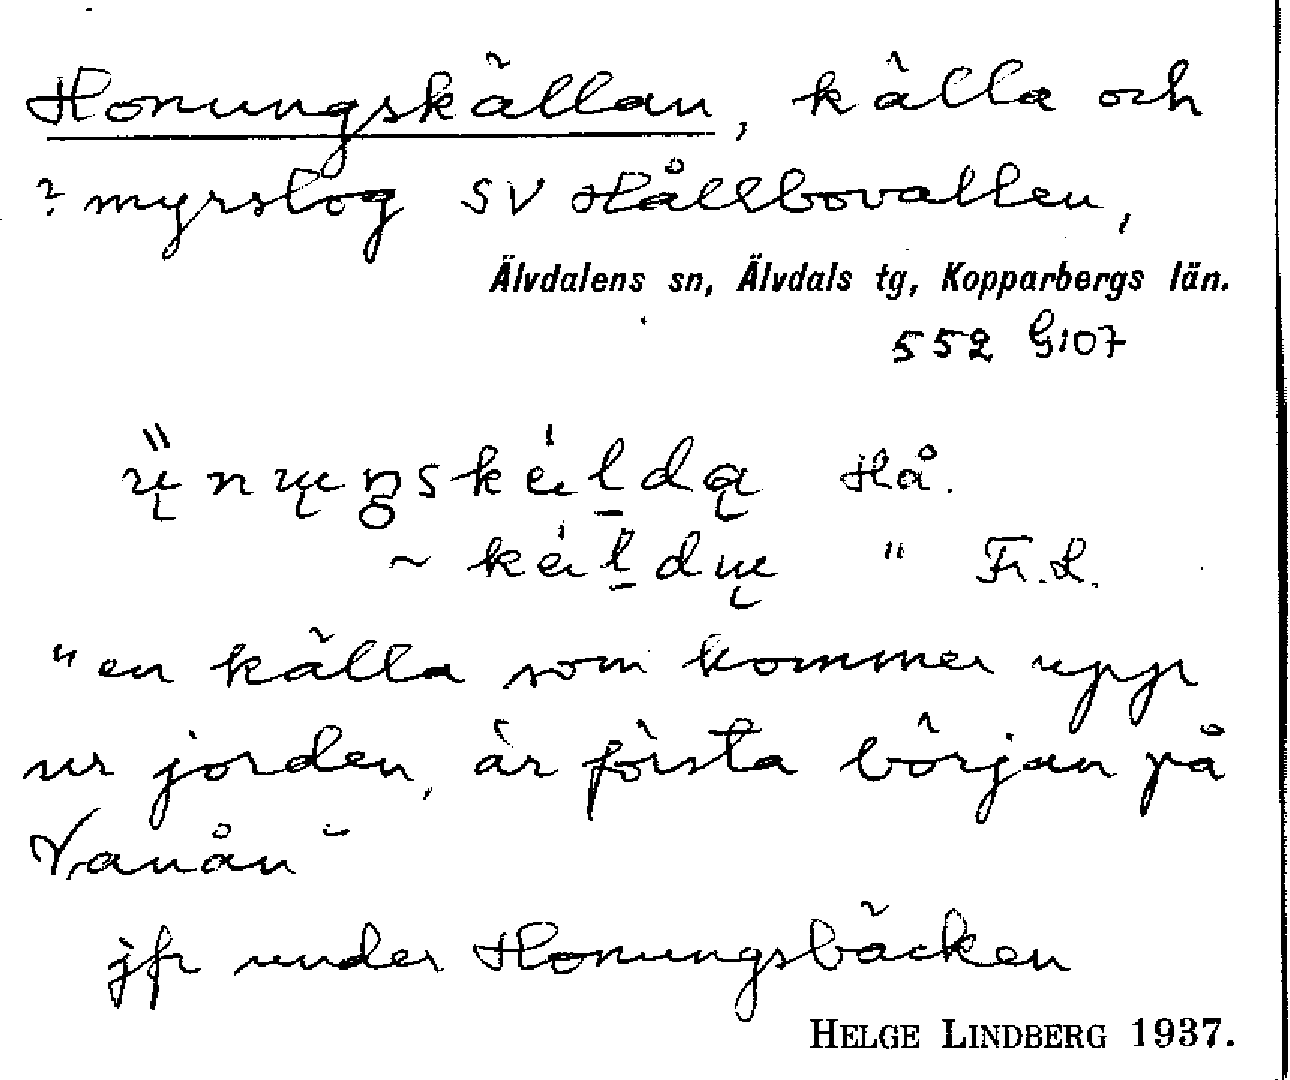 Honungskällan, källa och
? myrslog SV Hållbovallen,
Älvdalens sn, Älvdals tg, Kopparbergs län.
552 G:07
Hå.
~ " Fr. L.
"en källa som kommer upp
ur jorden, är första början på
Vanån"
jfr under Honungsbäcken
HELGE LINDBERG 1937.